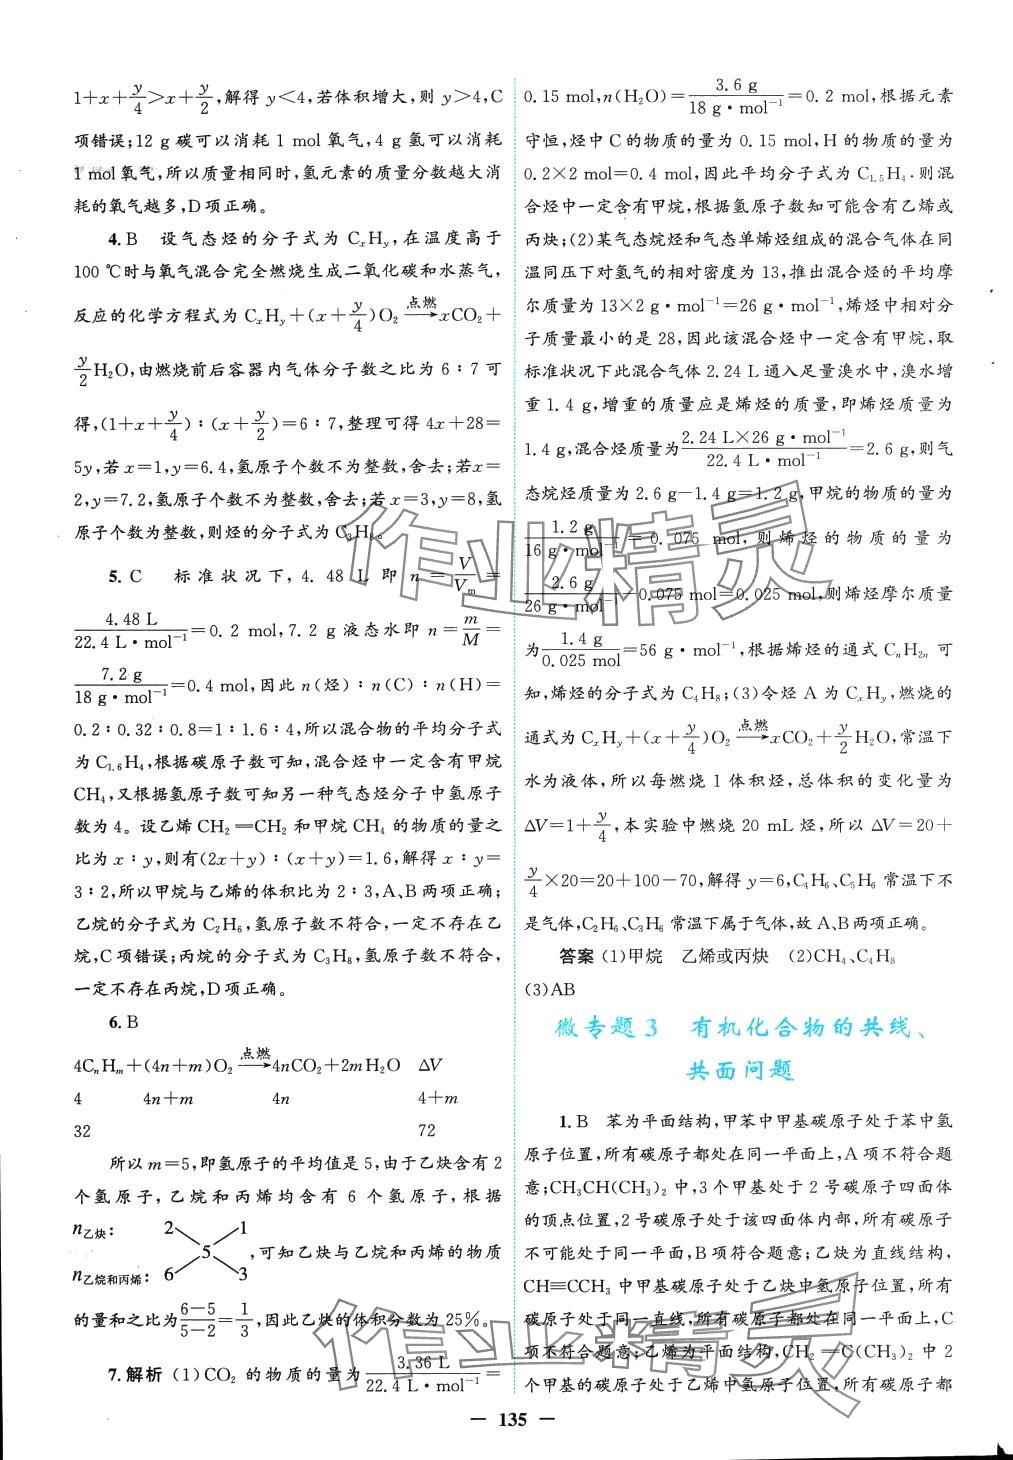 1+x+y/4>x+y/2,解得 y<4,若体积增大,则 y>4,C
项错误;12 g 碳可以消耗 1 mol 氧气,4 g 氢可以消耗
1 mol氧气,所以质量相同时,氢元素的质量分数越大消
耗的氧气越多,D项正确。
4. B 设气态烃的分子式为 CxHy,在温度高于
100 ℃时与氧气混合完全燃烧生成二氧化碳和水蒸气,
反应的化学方程式为 CxHy+(x+y/4)O2 —点燃→ xCO2+
y/2 H2O,由燃烧前后容器内气体分子数之比为 6∶7 可
得,(1+x+y/4)∶(x+y/2)=6∶7,整理可得 4x+28=
5y,若 x=1,y=6.4,氢原子个数不为整数,舍去;若 x=
2,y=7.2,氢原子个数不为整数,舍去;若 x=3,y=8,氢
原子个数为整数,则烃的分子式为 C3H8。
5. C 标准状况下,4.48 L 即 n=V/Vm=
4.48 L/22.4 L·mol⁻¹=0.2 mol,7.2 g 液态水即 n=m/M=
7.2 g/18 g·mol⁻¹=0.4 mol,因此 n(烃)∶n(C)∶n(H)=
0.2∶0.32∶0.8=1∶1.6∶4,所以混合物的平均分子式
为 C1.6H4,根据碳原子数可知,混合烃中一定含有甲烷
CH4,又根据氢原子数可知另一种气态烃分子中氢原子
数为 4。设乙烯 CH2=CH2 和甲烷 CH4 的物质的量之
比为 x∶y,则有(2x+y)∶(x+y)=1.6,解得 x∶y=
3∶2,所以甲烷与乙烯的体积比为 2∶3,A、B 两项正确;
乙烷的分子式为 C2H6,氢原子数不符合,一定不存在乙
烷,C项错误;丙烷的分子式为 C3H8,氢原子数不符合,
一定不存在丙烷,D项正确。
6. B
4CnHm+(4n+m)O2 —点燃→ 4nCO2+2mH2O ΔV
4 4n+m 4n 4+m
32 72
所以 m=5,即氢原子的平均值是 5,由于乙炔含有 2
个氢原子,乙烷和丙烯均含有 6 个氢原子,根据
n乙炔: 2 1
5 ,可知乙炔与乙烷和丙烯的物质
n乙烷和丙烯: 6 3
的量和之比为(6−5)/(5−2)=1/3,因此乙炔的体积分数为 25%。
7. 解析 (1)CO2 的物质的量为 3.36 L/22.4 L·mol⁻¹=
0.15 mol,n(H2O)=3.6 g/18 g·mol⁻¹=0.2 mol,根据元素
守恒,烃中 C 的物质的量为 0.15 mol,H 的物质的量为
0.2×2 mol=0.4 mol,因此平均分子式为 C1.5H4.则混
合烃中一定含有甲烷,根据氢原子数知可能含有乙烯或
丙炔;(2)某气态烷烃和气态单烯烃组成的混合气体在同
温同压下对氢气的相对密度为 13,推出混合烃的平均摩
尔质量为 13×2 g·mol⁻¹=26 g·mol⁻¹,烯烃中相对分
子质量最小的是 28,因此该混合烃中一定含有甲烷,取
标准状况下此混合气体 2.24 L 通入足量溴水中,溴水增
重 1.4 g,增重的质量应是烯烃的质量,即烯烃质量为
1.4 g,混合烃质量为2.24 L×26 g·mol⁻¹/22.4 L·mol⁻¹=2.6 g,则气
态烷烃质量为 2.6 g−1.4 g=1.2 g,甲烷的物质的量为
1.2 g/16 g·mol⁻¹=0.075 mol,则烯烃的物质的量为
2.6 g/26 g·mol⁻¹−0.075 mol=0.025 mol,则烯烃摩尔质量
为1.4 g/0.025 mol=56 g·mol⁻¹,根据烯烃的通式 CnH2n 可
知,烯烃的分子式为 C4H8;(3)令烃 A 为 CxHy,燃烧的
通式为 CxHy+(x+y/4)O2 —点燃→ xCO2+y/2 H2O,常温下
水为液体,所以每燃烧 1 体积烃,总体积的变化量为
ΔV=1+y/4,本实验中燃烧 20 mL 烃,所以 ΔV=20+
y/4×20=20+100−70,解得 y=6,C4H6、C5H6 常温下不
是气体,C2H6、C3H6 常温下属于气体,故 A、B两项正确。
答案 (1)甲烷 乙烯或丙炔 (2)CH4、C4H8
(3)AB
微专题 3 有机化合物的共线、
共面问题
1. B 苯为平面结构,甲苯中甲基碳原子处于苯中氢
原子位置,所有碳原子都处在同一平面上,A项不符合题
意;CH3CH(CH3)2 中,3 个甲基处于 2 号碳原子四面体
的顶点位置,2 号碳原子处于该四面体内部,所有碳原子
不可能处于同一平面,B项符合题意;乙炔为直线结构,
CH≡CCH3 中甲基碳原子处于乙炔中氢原子位置,所有
碳原子处于同一直线,所有碳原子都处在同一平面上,C
项不符合题意;乙烯为平面结构,CH2=C(CH3)2 中 2
个甲基的碳原子处于乙烯中氢原子位置,所有碳原子都
— 135 —
作业精灵
作业精灵